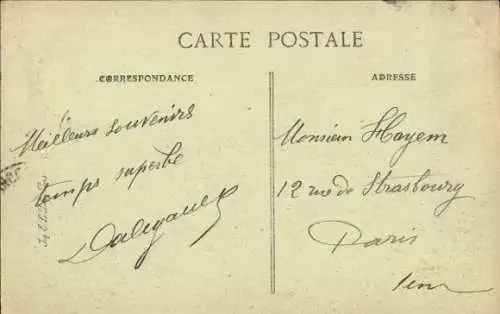 CARTE POSTALE
CORRESPONDANCE
ADRESSE
Meilleurs souvenirs
temps superbe
Monsieur Hayem
12 rue de Strasbourg
Paris